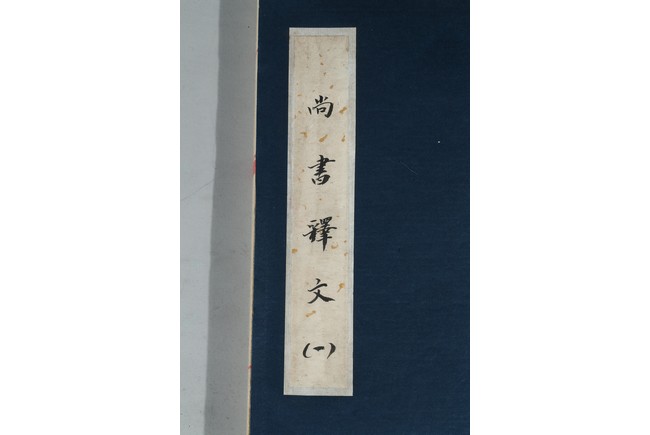 尚書釋文(一)